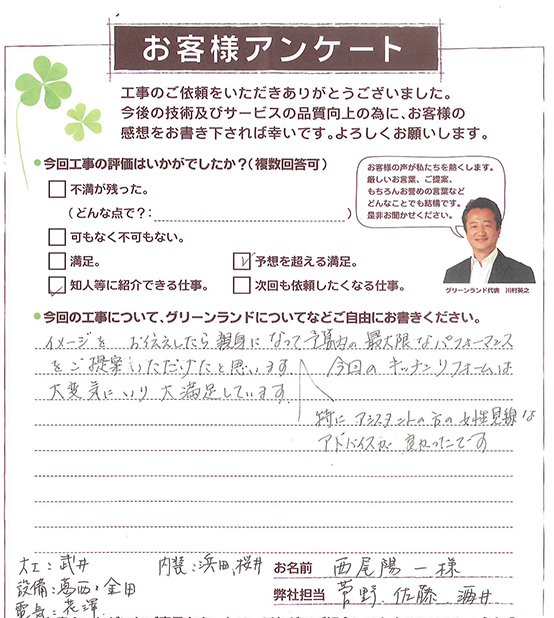 お客様アンケート
工事のご依頼をいただきありがとうございました。
今後の技術及びサービスの品質向上の為に、お客様の
感想をお書き下されば幸いです。よろしくお願いします。
今回工事の評価はいかがでしたか？（複数回答可）
不満が残った。
（どんな点で？：　）
可もなく不可もない。
満足。
予想を超える満足。
知人等に紹介できる仕事。
次回も依頼したくなる仕事。
お客様の声が私たちを熱くします。
厳しいお言葉、ご提案、
もちろんお誉めの言葉など
どんなことでも結構です。
是非お聞かせください。
グリーンランド代表　川村英之
今回の工事について、グリーンランドについてなどご自由にお書きください。
イメージを お伝えしたら親身になって予算内の最大限なパフォーマンス
をご提案いただけたと思います。今回のキッチンリフォームは
大変気にいり大満足しています。
特にアシスタントの方の女性見線な
アドバイスが良かったです
大工：武井　内装：浜田、桜井
設備：葛西・金田
電気：花澤
お名前　西尾陽一様
弊社担当　菅野、佐藤　酒井